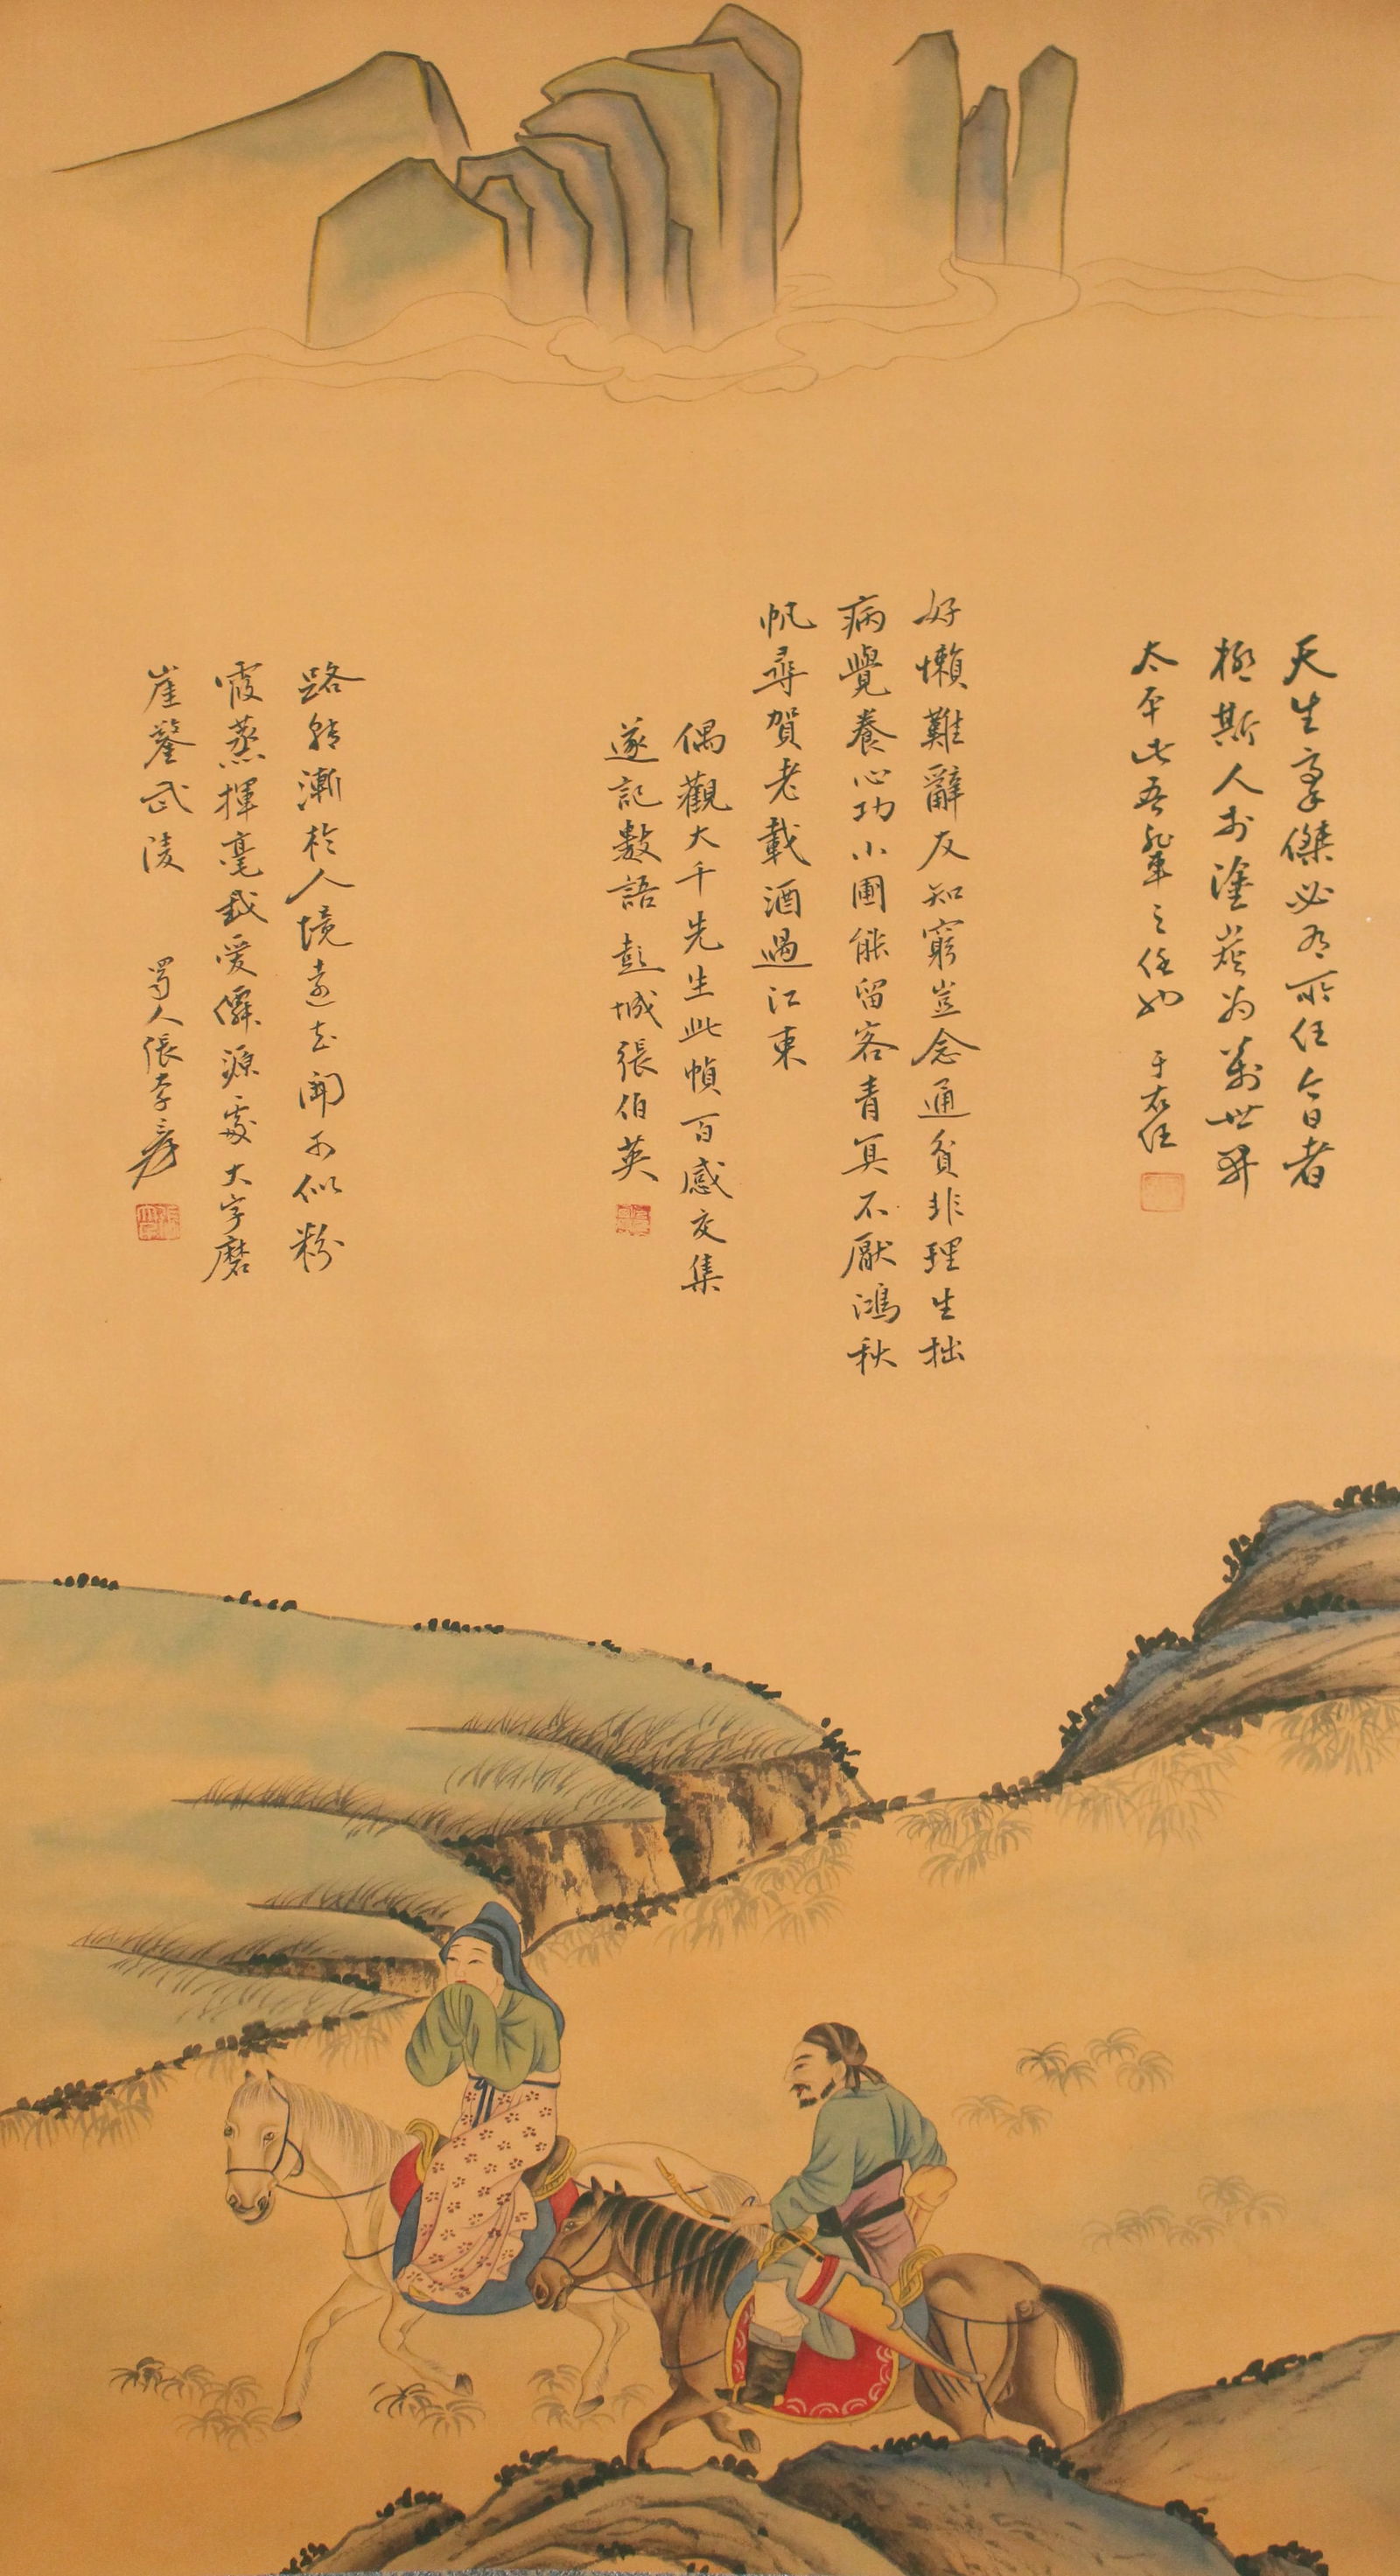 天生豪傑必有所任今日者
拯斯人於塗炭為萬世開
太平此吾輩之任也 于右任
好懶難辭友知窮豈念通貧非理生拙
病覺養心功小圃能留客青冥不厭鴻秋
帆尋賀老載酒過江東
偶觀大千先生此幀百感交集
遂記數語 彭城張伯英
路轉漸於人境遠花開不似粉
霞蒸揮毫我愛僊源處大字磨
崖鑿武陵 蜀人張季爰